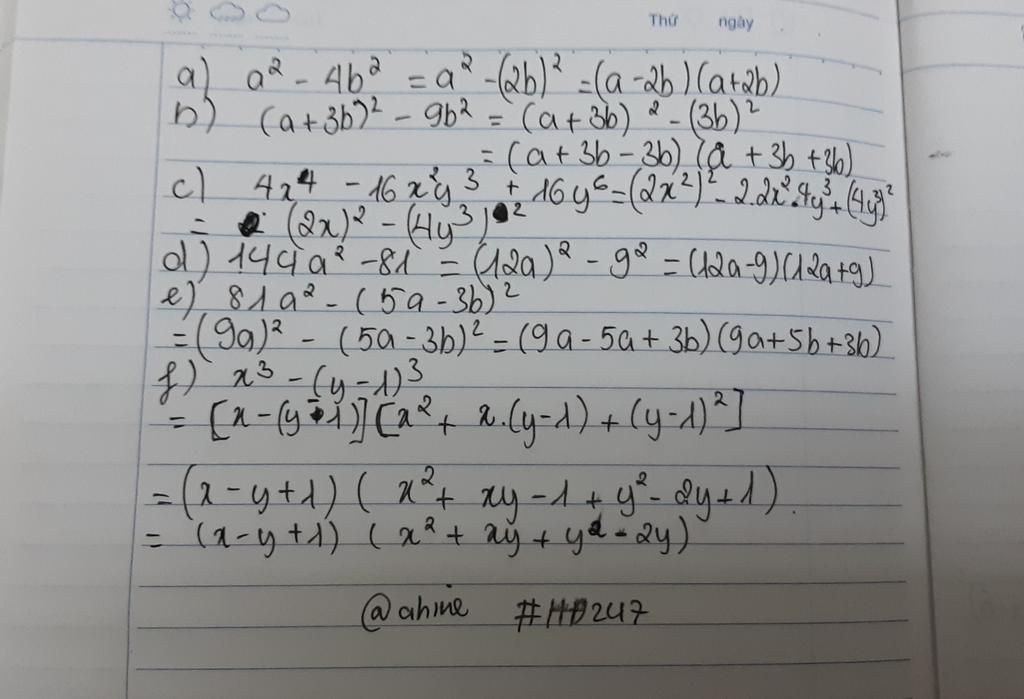 Thứ ngày
a) a² - 4b² = a² - (2b)² = (a - 2b)(a+2b)
b) (a+3b)² - 9b² = (a+3b)² - (3b)²
= (a + 3b - 3b) (a + 3b + 3b)
c) 4x⁴ - 16x²y³ + 16y⁶ = (2x²)² - 2.2x².4y³ + (4y³)²
= (2x)² - (4y³)²
d) 144a² - 81 = (12a)² - 9² = (12a-9)(12a+9)
e) 81a² - (5a - 3b)²
= (9a)² - (5a - 3b)² = (9a - 5a + 3b)(9a+5b+3b)
f) x³ - (y - 1)³
= [x - (y - 1)][x² + x.(y-1) + (y-1)²]
= (x - y + 1) (x² + xy - 1 + y² - 2y + 1).
= (x - y + 1) (x² + xy + y² - 2y)
@ahine #HD247